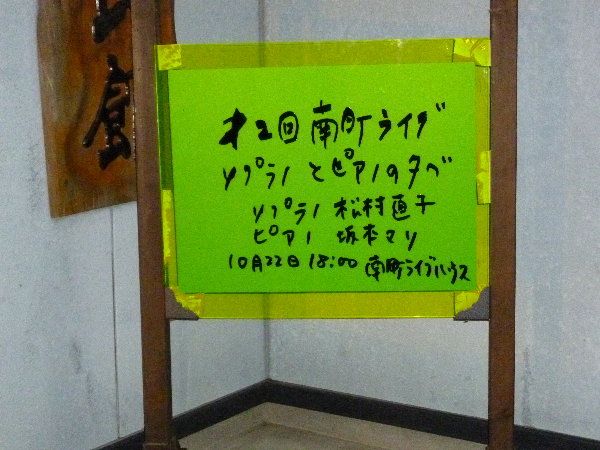 才2回 南町ライブ
ソプラノとピアノの夕べ
ソプラノ 松村直子
ピアノ 坂本マリ
10月22日 18:00 南町ライブハウス
館